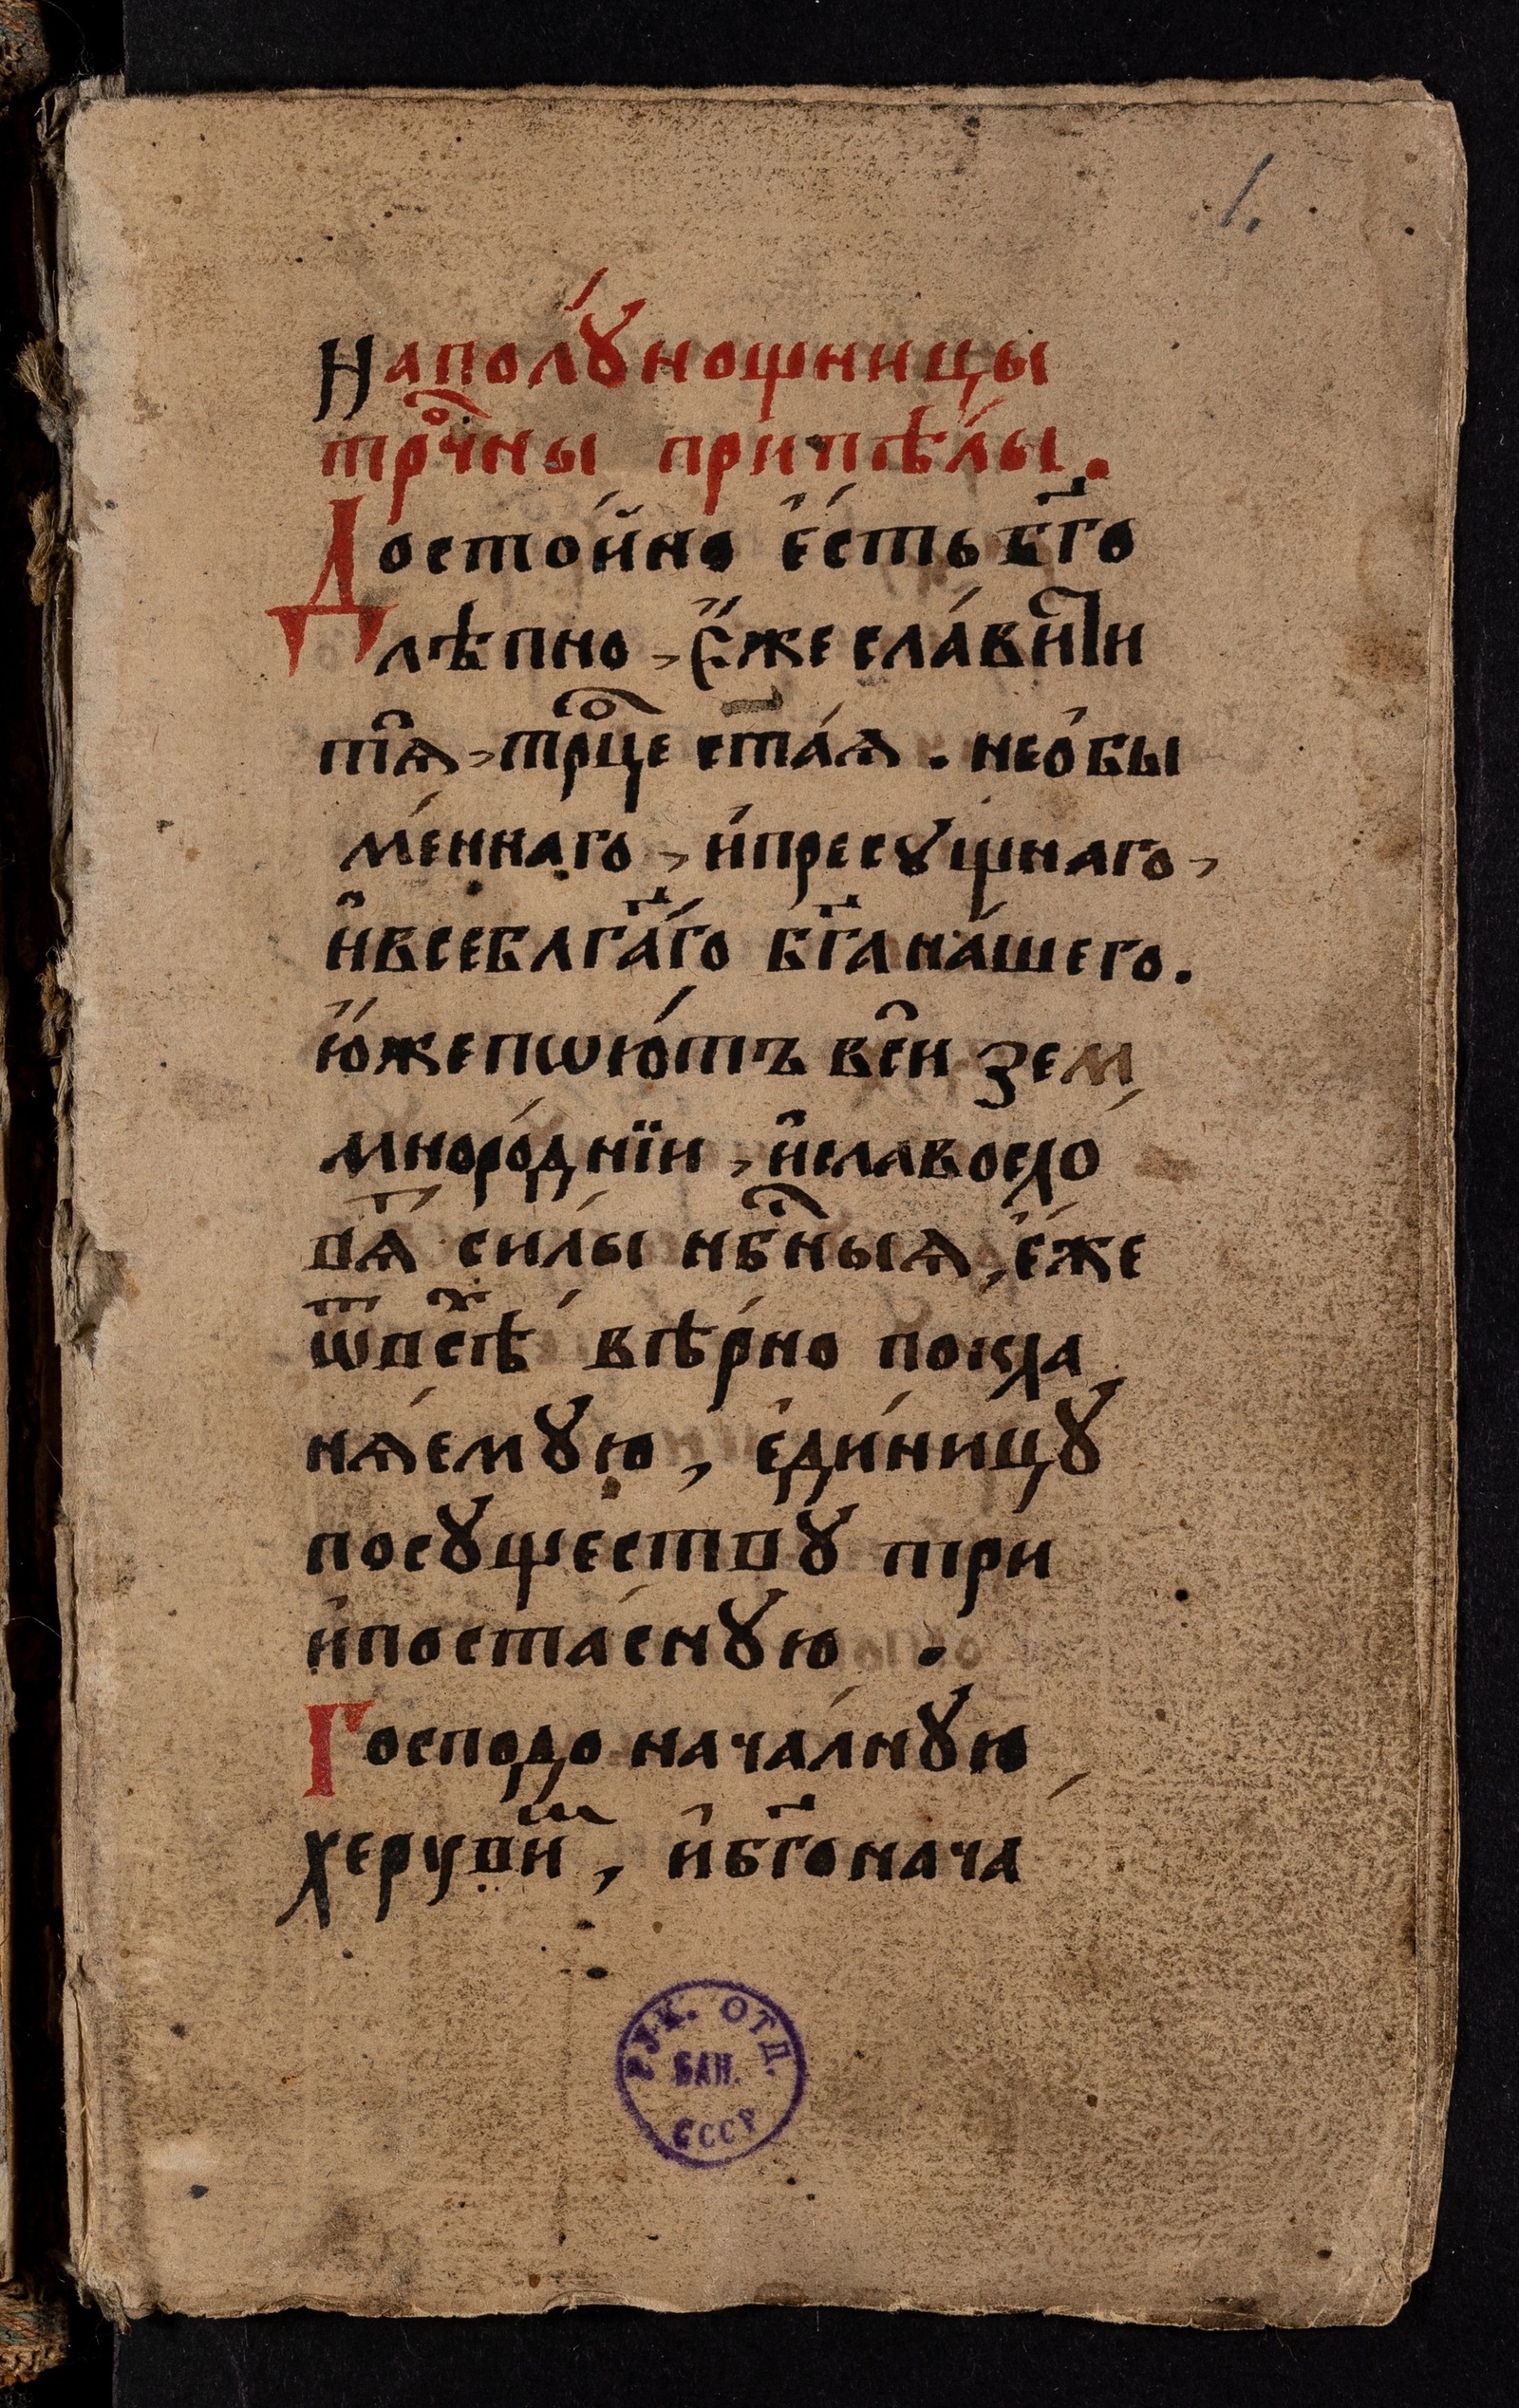 1.
Наполꙋ́нощницы
трⷪ҇чны припѣ́лы.
Досто́йно є҆́сть бг҃о
лѣпно, є҆́же сла́витїи
тѧ̑, трⷪ҇це ст҃а́ѧ. нео́бы
ме́ннаго, и҆пресꙋщнаго,
и҆всебл҃га́го бг҃а на́шего.
ю҆́жепою́тъ вси̑ зем
мноро́днїи, и҆славосло
вѧ̑ силы́ нбⷭ҇ныѧ, є҆́же
ѿ всѣⷯ вѣ́рно покла
нѧ́емꙋю, є҆ди́ницꙋ
посꙋществꙋ три
и҆поста́снꙋю.
Господо нача́лнꙋю
херувиⷨ, и҆ бг҃онача
РУК. ОТД.
БАН.
СССР